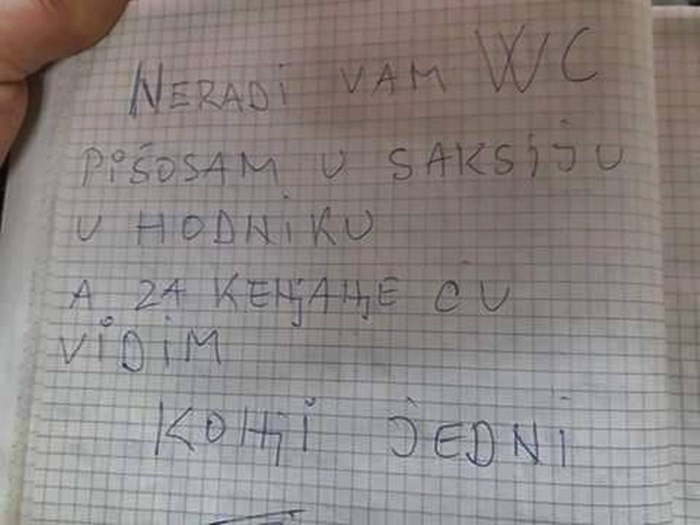 NERADI VAM WC
PiŠOSAM U SAKSIJU
U HODNiKU
A ZA KENjANjE ĆU
ViDiM
KONji JEDNi